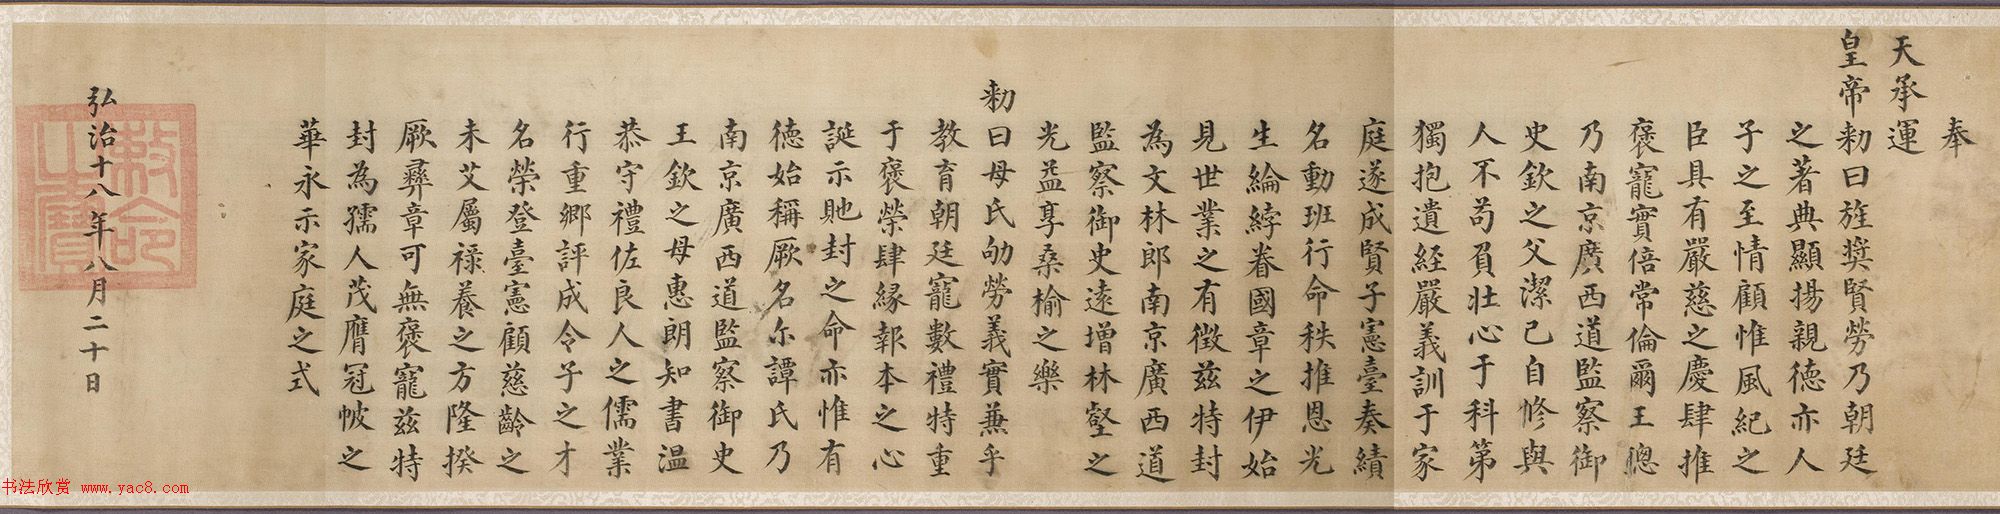 奉
天承運
皇帝勑曰旌奬賢勞乃朝廷
之著典顯揚親德亦人
子之至情顧惟風紀之
臣具有嚴慈之慶肆推
褒寵實倍常倫爾王總
乃南京廣西道監察御
史欽之父潔己自修與
人不苟負壯心于科第
獨抱遺經嚴義訓于家
庭遂成賢子憲臺奏績
名動班行命秩推恩光
生綸綍眷國章之伊始
見世業之有徵茲特封
為文林郎南京廣西道
監察御史遠增林壑之
光益享桑榆之樂
勑曰母氏劬勞義實兼乎
教育朝廷寵數禮特重
于褒榮肆緣報本之心
誕示貤封之命亦惟有
德始稱厥名尒譚氏乃
南京廣西道監察御史
王欽之母惠朗知書溫
恭守禮佐良人之儒業
行重鄉評成令子之才
名榮登臺憲顧慈齡之
未艾屬祿養之方隆揆
厥彞章可無褒寵茲特
封為孺人茂膺冠帔之
華永示家庭之式
弘治十八年八月二十日
敕命之寶
书法欣赏 www.yac8.com